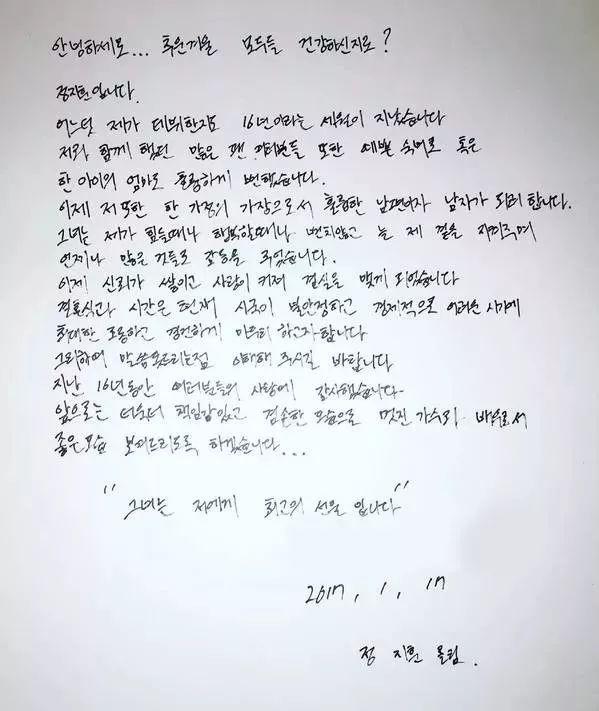 안녕하세요... 추운겨울 모두들 건강하신지요?
정지훈입니다.
어느덧 제가 데뷔한지도 16년이라는 세월이 지났습니다
저와 함께 했던 많은 팬 여러분들 또한 예쁜 숙녀로 혹은
한 아이의 엄마로 훌륭하게 변했습니다.
이제 저 또한 한 가정의 가장으로서 훌륭한 남편이자 남자가 되려 합니다.
그녀는 제가 힘들때나 행복할때나 변치않고 늘 제 곁을 지켜주며
언제나 많은 것들로 감동을 주었습니다.
이제 신뢰가 쌓이고 사랑이 커져 결실을 맺게 되었습니다
결혼식과 시간은 현재 시국이 불안정하고 경제적으로 어려운 시기에
최대한 조용하고 경건하게 미루리 하고자합니다
그리하여 말씀못드리는점 이해해 주시길 바랍니다
지난 16년동안 여러분들의 사랑에 감사했습니다.
앞으로는 더욱더 책임감있고 겸손한 모습으로 멋진 가수와 배우로서
좋은모습 보여드리도록 하겠습니다...
"그녀는 저에게 최고의 선물 입니다"
2017. 1. 17
정 지훈 올림.